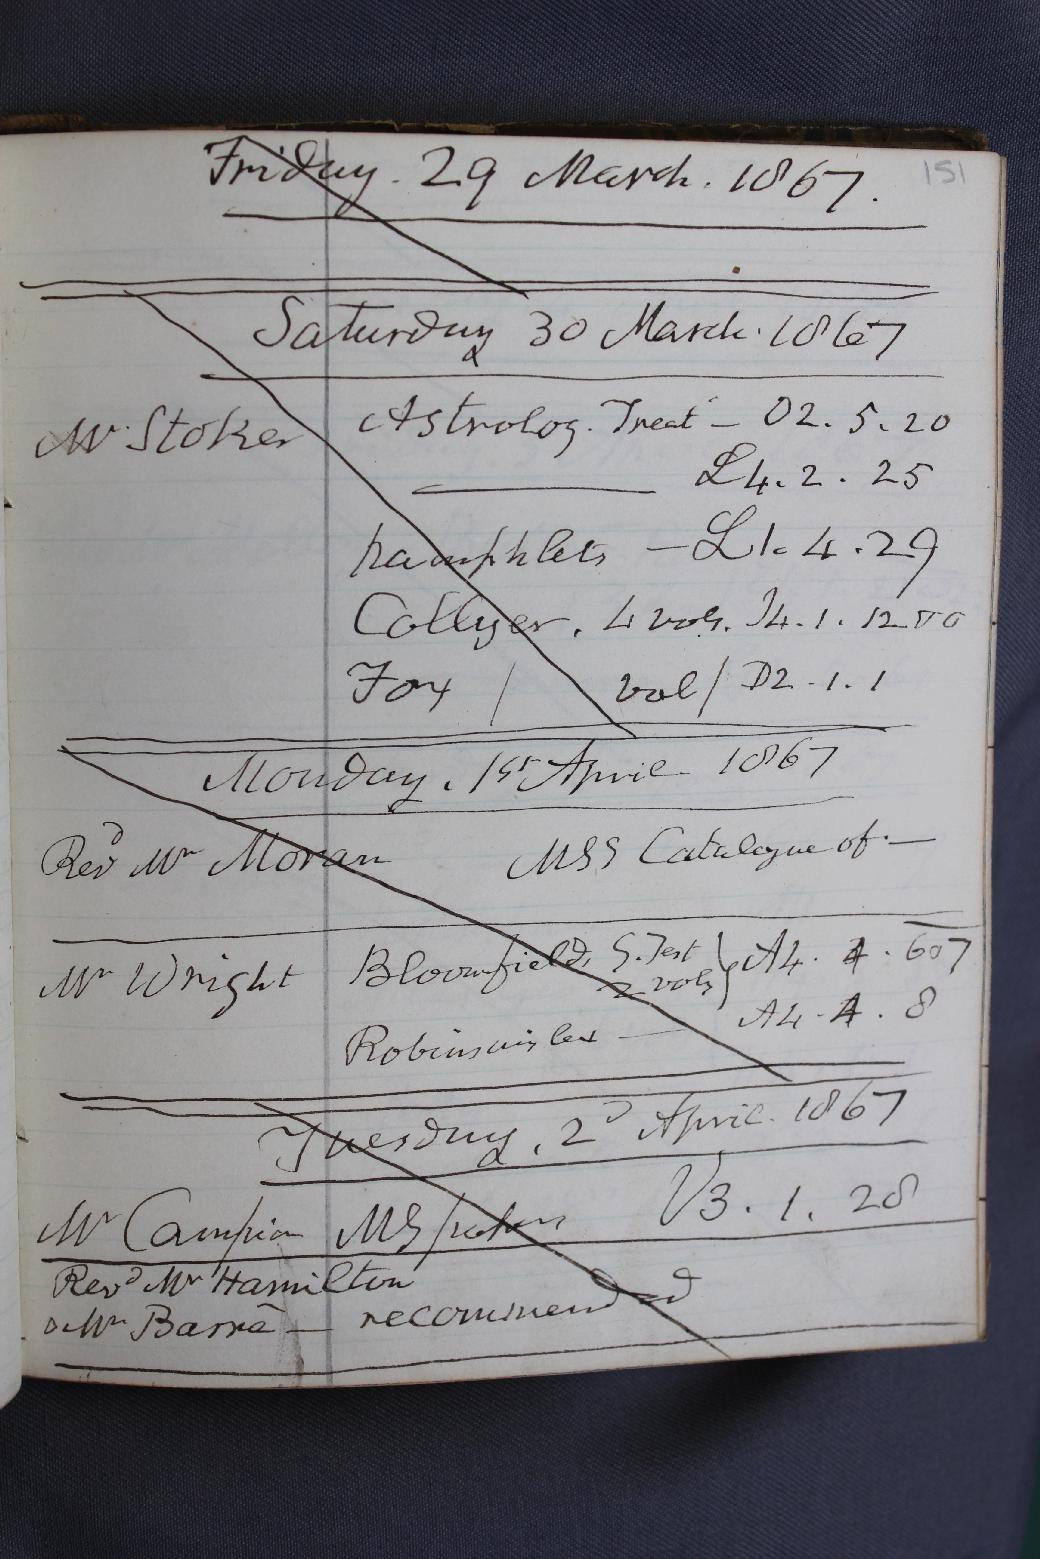 151
Friday. 29 March. 1867.
Saturday 30 March. 1867
Mr Stoker Astrolog. Treat - O2. 5. 20
L4. 2. 25
pamphlets - L1. 4. 29
Collyer. 4 vols. J4. 1. 12
Fox / vol / D2. 1. 1
Monday. 1st April 1867
Revd Mr Moran MSS Catalogue of -
Mr Wright Bloomfields G. Test } A4. 4. 607
2 vols
Robinson's lex - A4. 4. 8
Tuesday. 2d April. 1867
Mr Campion MS V3. 1. 28
Revd Mr Hamilton
Mr Barré - recommended